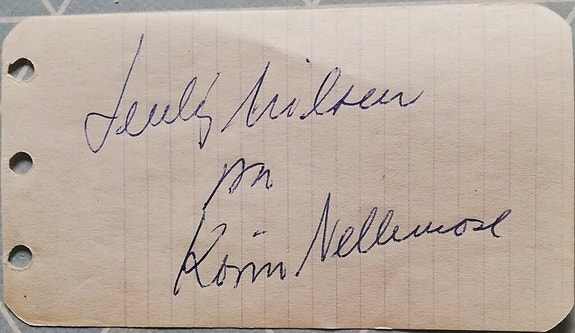 Venlig hilsen
fra
Karin Nellemose